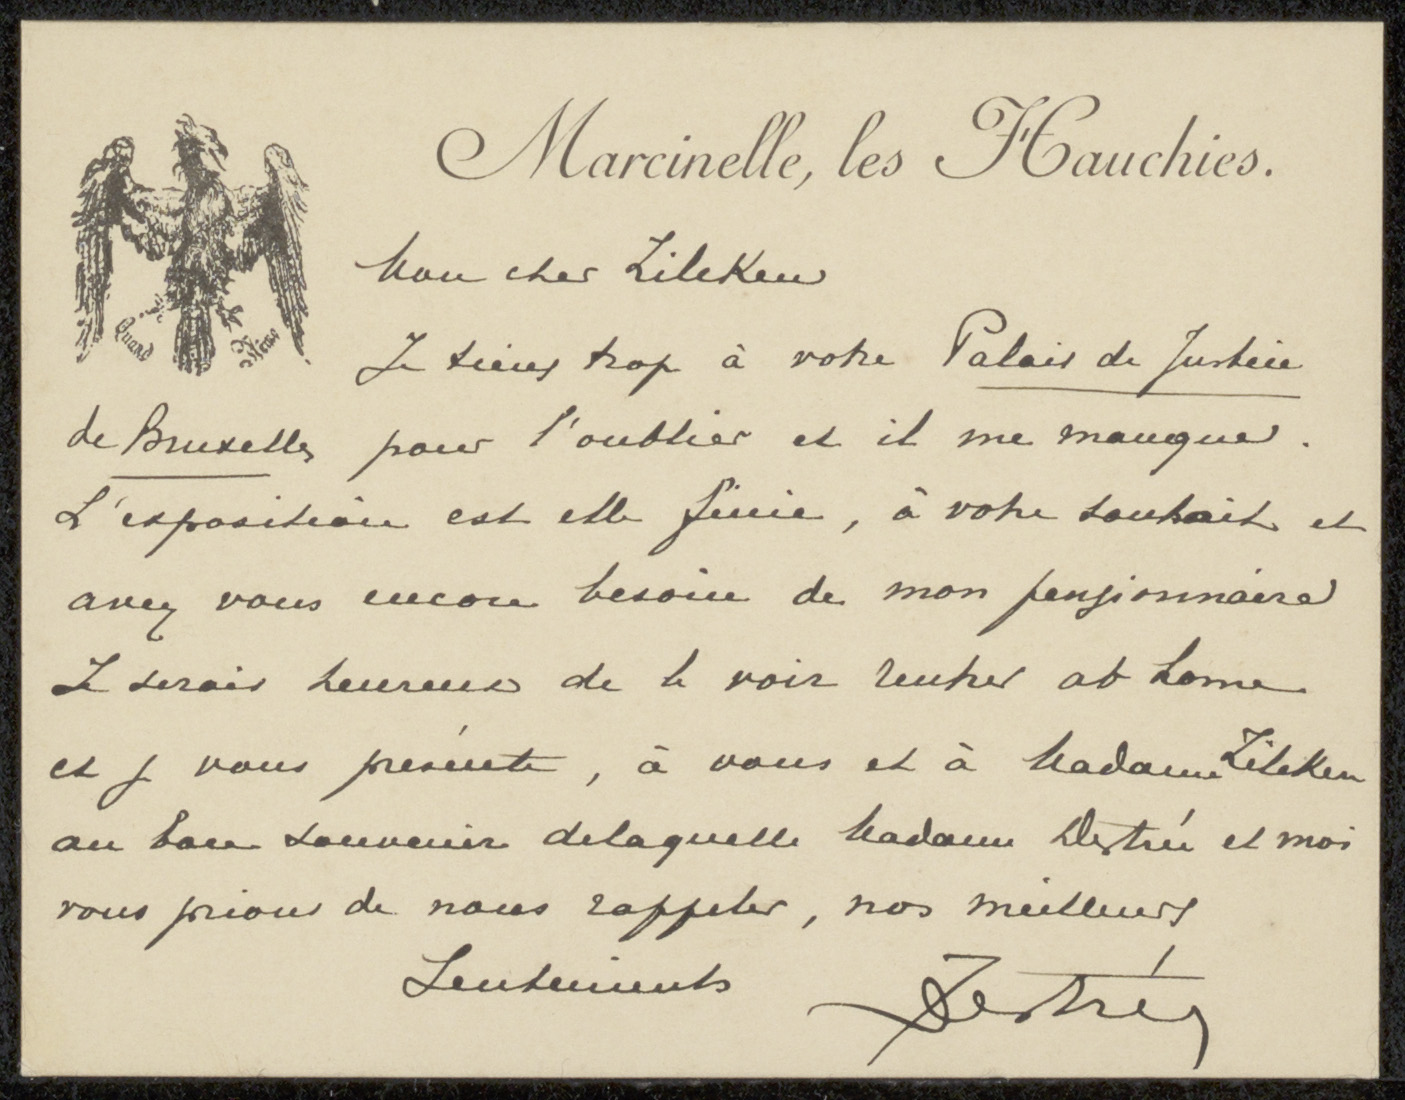 Marcinelle, les Hauchies.
Quand
Mon cher Zilcken
Je tiens trop à votre Palais de Justice
de Bruxelles pour l'oublier et il me manque.
L'exposition est elle finie, à votre souhait et
avez vous encore besoin de mon pensionnaire
Je serais heureux de le voir rentrer at home
et je vous présente, à vous et à Madame Zilcken
au bon souvenir de laquelle Madame Destrée et moi
vous prions de nous rappeler, nos meilleurs
Sentiments
Destrée